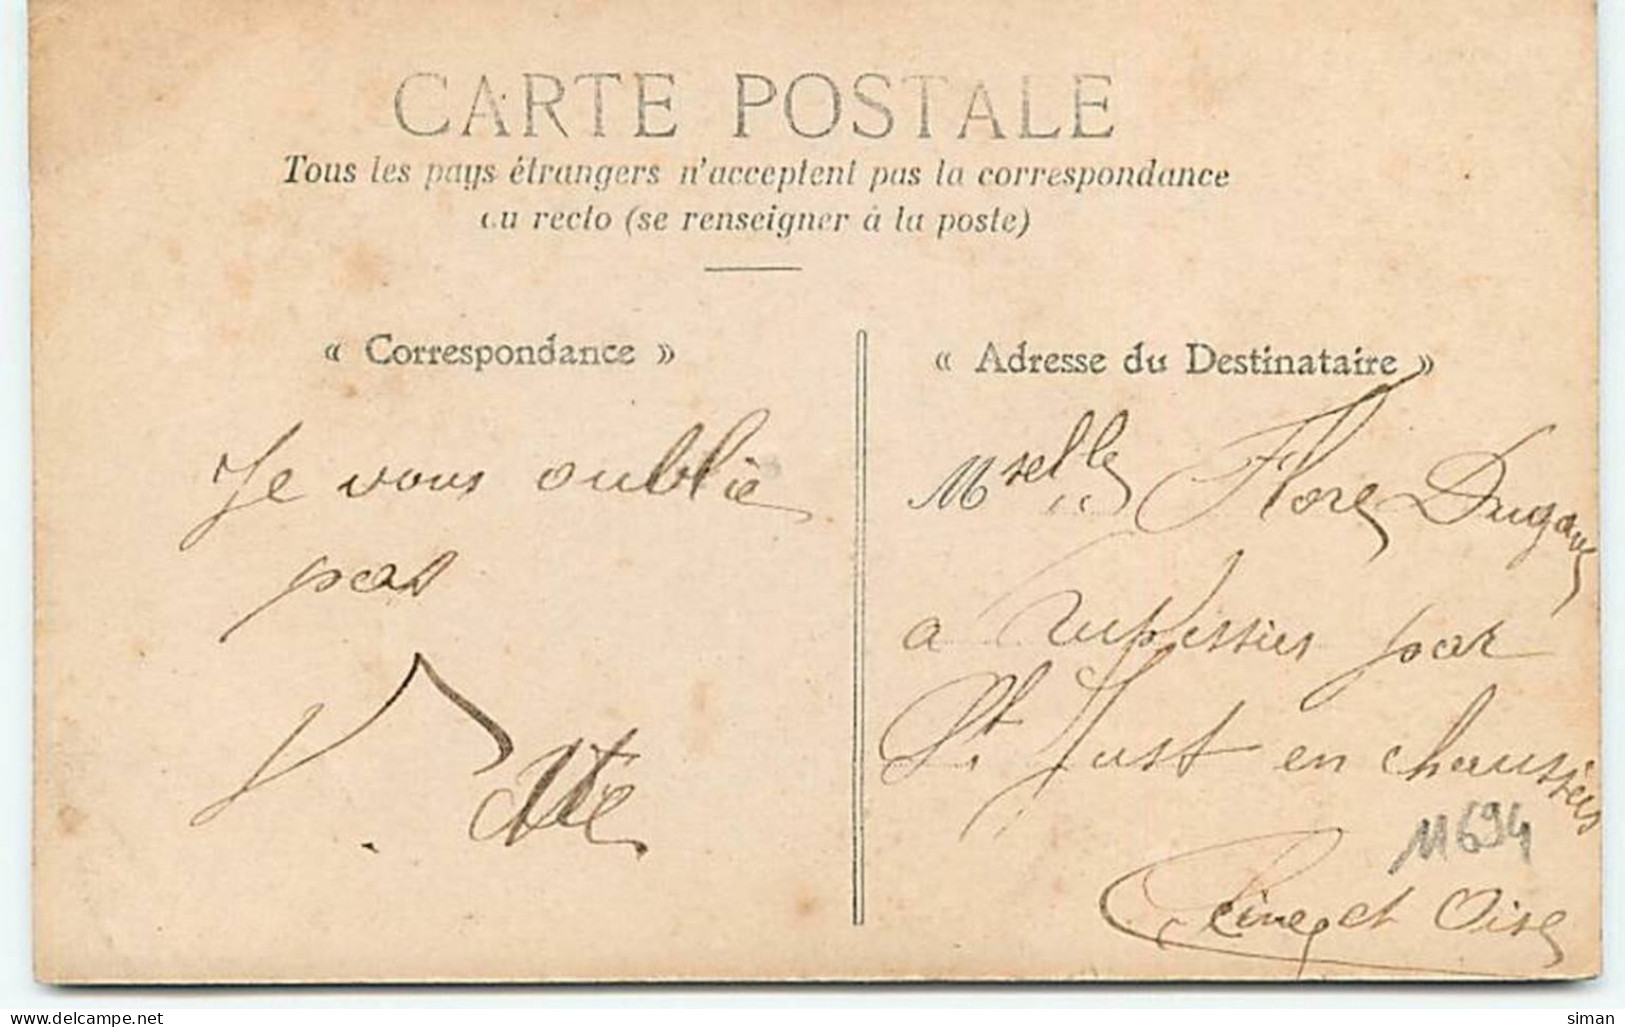 CARTE POSTALE
Tous les pays étrangers n'acceptent pas la correspondance
au recto (se renseigner à la poste)
« Correspondance »
Je vous oublie
pas
V.
« Adresse du Destinataire »
Mselle Flore
a par
St Just en chaussées
11694
Seine et Oise
www.delcampe.net
siman